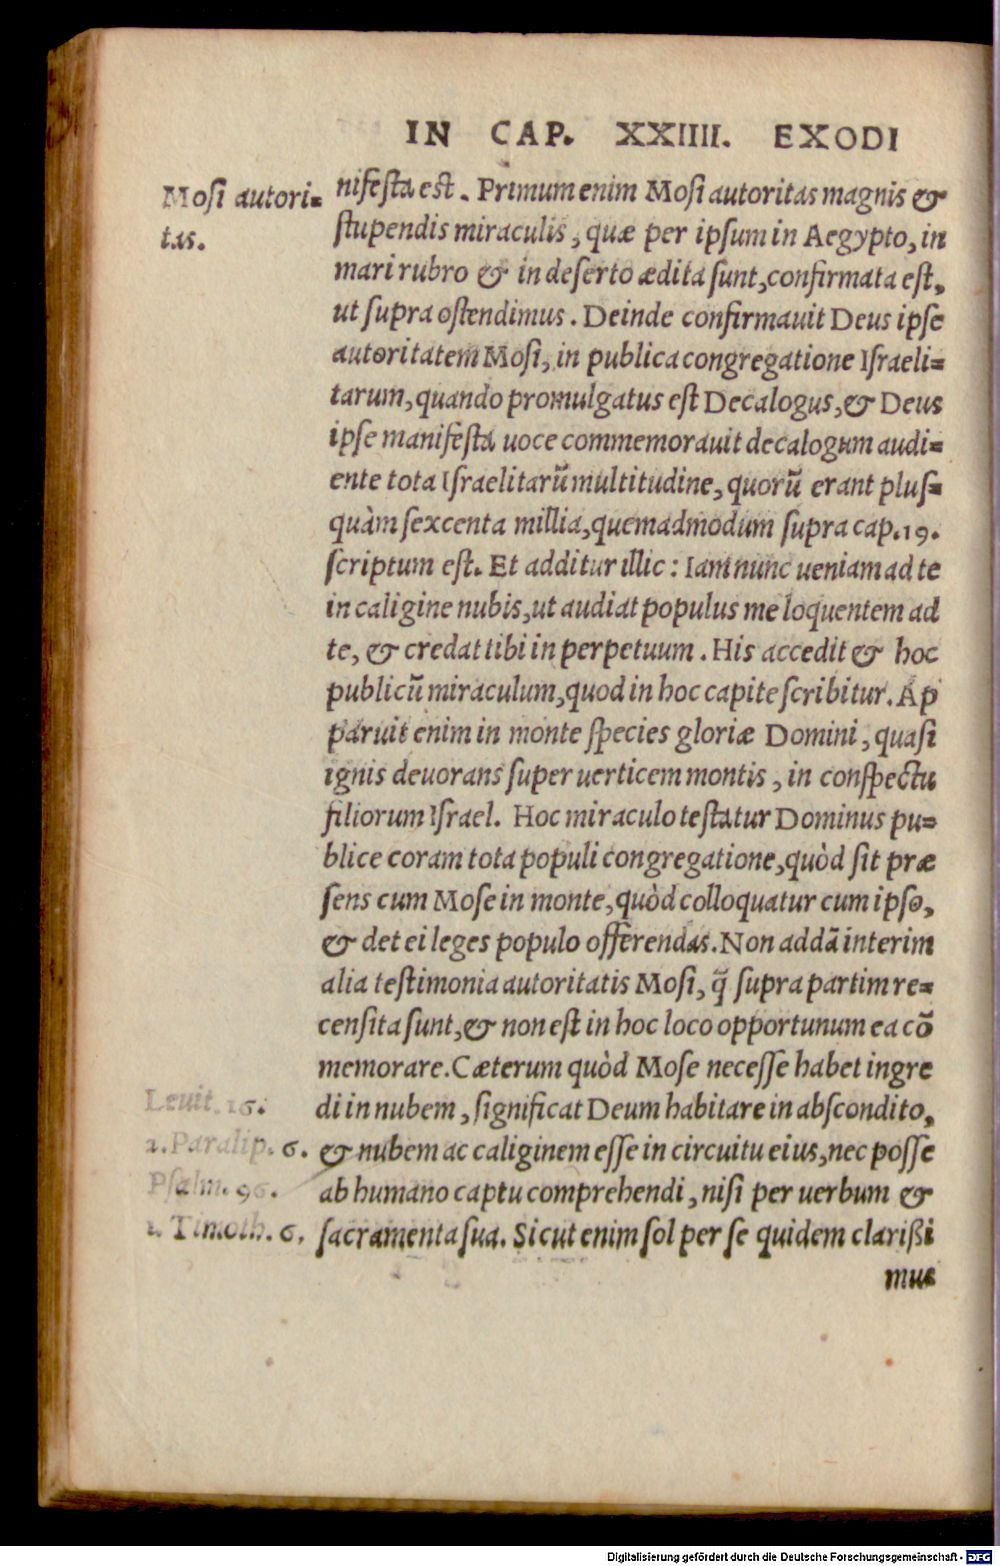 IN CAP. XXIIII. EXODI
Mosi autori-
tas.
nifesta est. Primum enim Mosi autoritas magnis &
stupendis miraculis, quæ per ipsum in Aegypto, in
mari rubro & in deserto ædita sunt, confirmata est,
ut supra ostendimus. Deinde confirmauit Deus ipse
autoritatem Mosi, in publica congregatione Israeli-
tarum, quando promulgatus est Decalogus, & Deus
ipse manifesta uoce commemorauit decalogum audi-
ente tota Israelitarũ multitudine, quorũ erant plus-
quàm sexcenta millia, quemadmodum supra cap. 19.
scriptum est. Et additur illic: Iam nunc ueniam ad te
in caligine nubis, ut audiat populus me loquentem ad
te, & credat tibi in perpetuum. His accedit & hoc
publicũ miraculum, quod in hoc capite scribitur. Ap
paruit enim in monte species gloriæ Domini, quasi
ignis deuorans super uerticem montis, in conspectu
filiorum Israel. Hoc miraculo testatur Dominus pu-
blice coram tota populi congregatione, quòd sit præ
sens cum Mose in monte, quòd colloquatur cum ipso,
& det ei leges populo offerendas. Non addã interim
alia testimonia autoritatis Mosi, q̃ supra partim re-
censita sunt, & non est in hoc loco opportunum ea cõ
memorare. Cæterum quòd Mose necesse habet ingre
di in nubem, significat Deum habitare in abscondito,
& nubem ac caliginem esse in circuitu eius, nec posse
ab humano captu comprehendi, nisi per uerbum &
sacramenta sua. Sicut enim sol per se quidem clarißi
mus
Leuit. 16.
2. Paralip. 6.
Psalm. 96.
1. Timoth. 6.
Digitalisierung gefördert durch die Deutsche Forschungsgemeinschaft - DFG